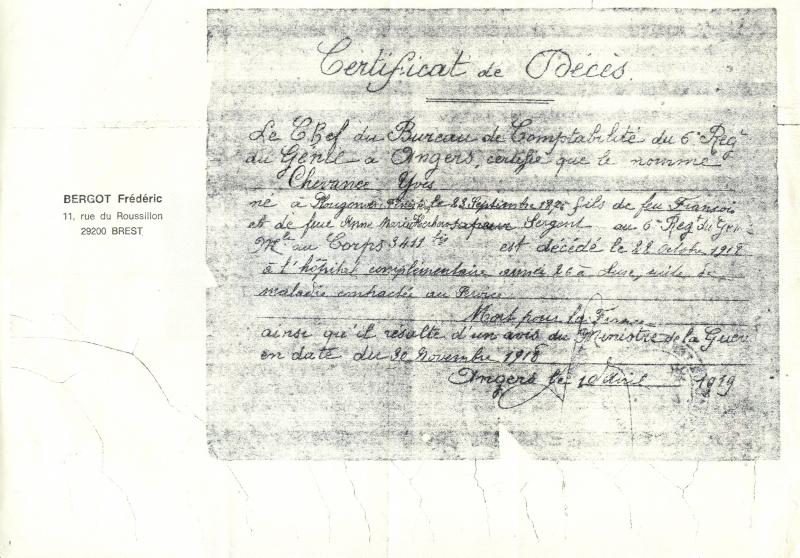 BERGOT Frédéric
11, rue du Roussillon
29200 BREST
Certificat de Décès.
Le Chef du Bureau de Comptabilité du 6e Regt
du Génie à Angers, certifie que le nommé
Chevance Yves
né à le 23 Septembre fils de feu François
et de feue Anne Marie sapeur Sergent au 6e Regt du Génie
Mle au Corps 3411 est décédé le 22 Octobre
à l'hôpital complémentaire armée 26 à suite de
maladie contractée au
Mort pour la France
ainsi qu'il résulte d'un avis du Ministre de la Guerre
en date du 30 Novembre 1918
Angers le 10 Avril 1919